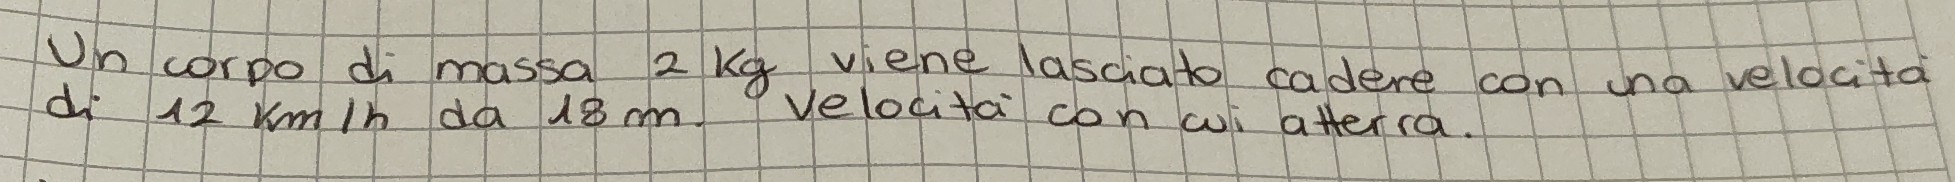 Un corpo di massa 2 Kg viene lasciato cadere con una velocità
di 12 Km/h da 18 m. Velocità con cui atterra.